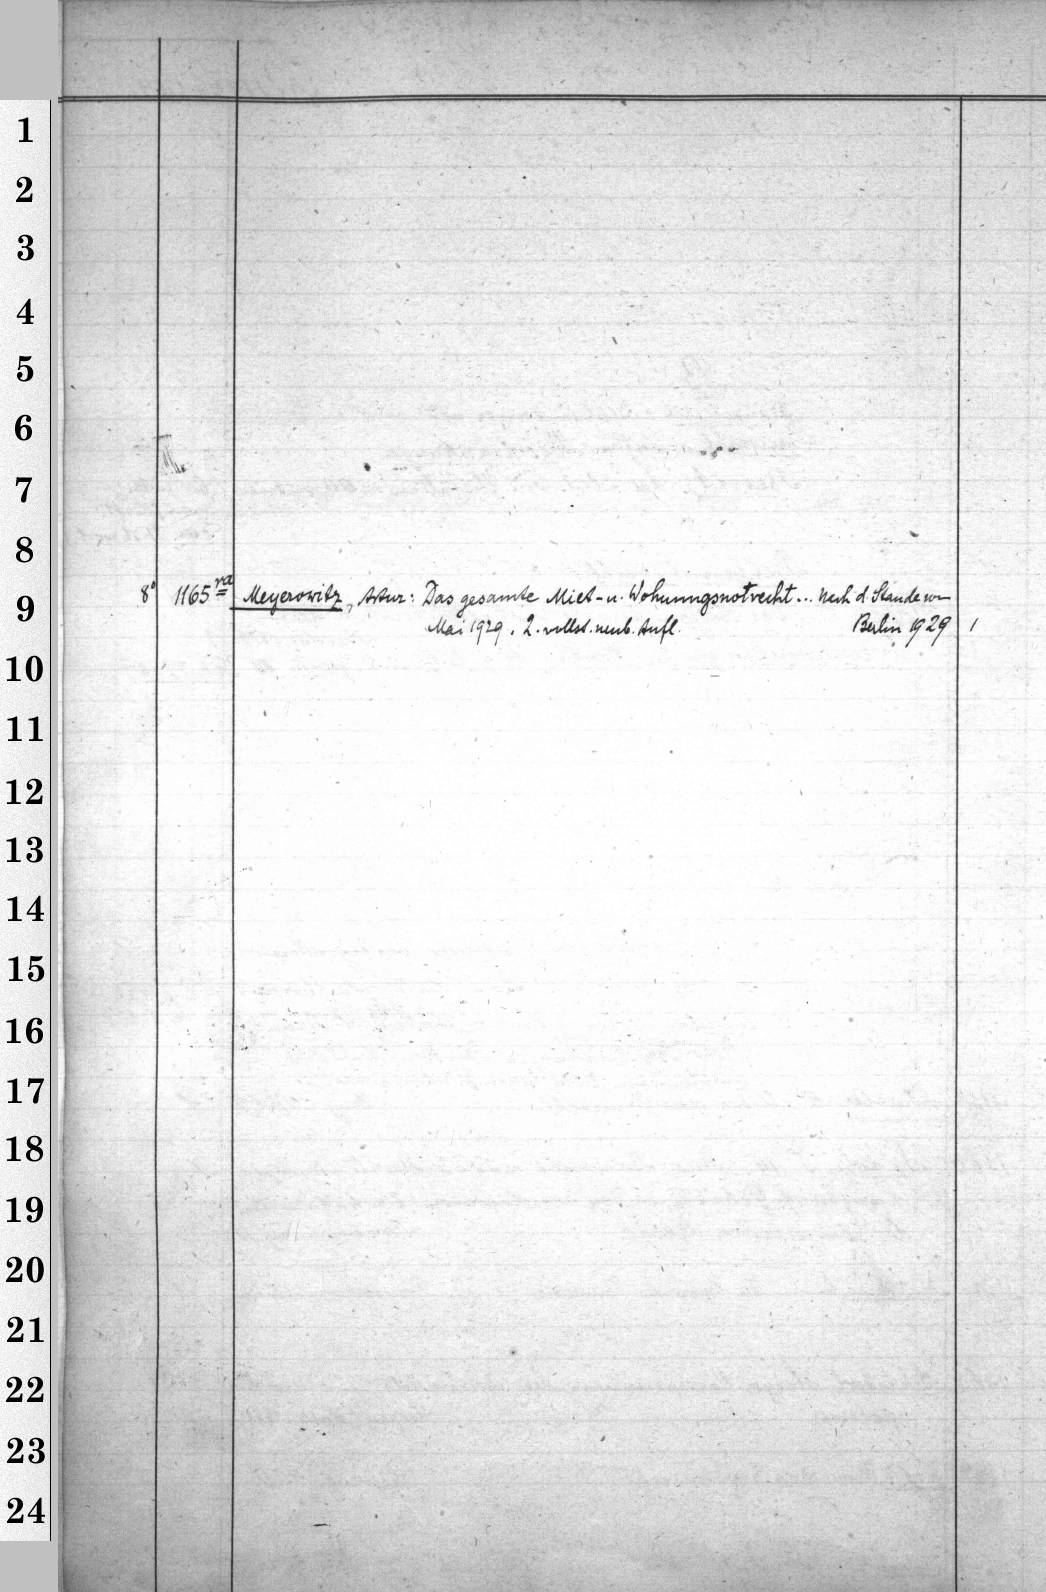 1
2
3
4
5
6
7
8
8° 1165ra Meyerowitz, Artur: Das gesamte Miet- u. Wohnungsnotrecht... Nach d. Stande von
9
Mai 1929. 2. vollst. neub. Aufl. Berlin 1929 1
10
11
12
13
14
15
16
17
18
19
20
21
22
23
24